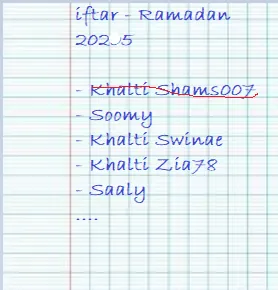 iftar - Ramadan
2025
- Khalti Shams007
- Soomy
- Khalti Swinae
- Khalti Zia78
- Saaly
....